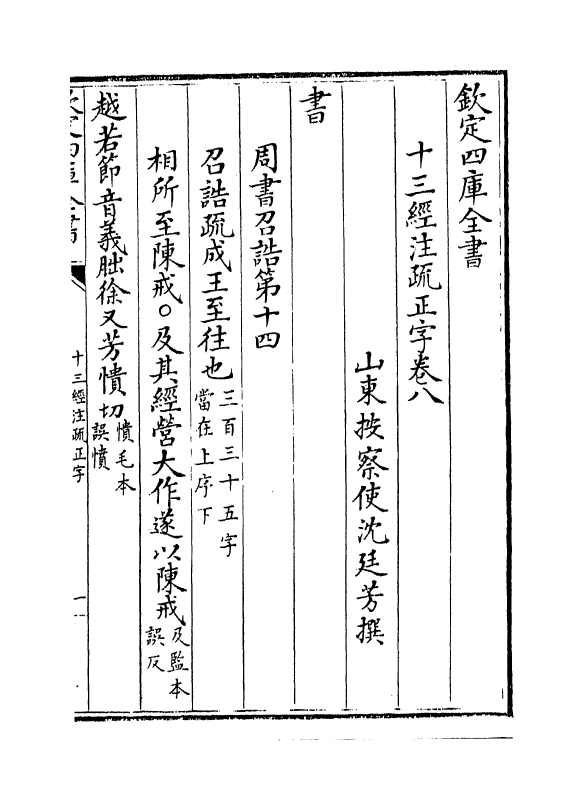 欽定四庫全書
十三經注疏正字卷八
山東按察使沈廷芳撰
書
周書召誥第十四
召誥疏成王至往也三百三十五字
當在上序下
相所至陳戒○及其經營大作遂以陳戒及監本
誤反
越若節音義朏徐又芳憒切憒毛本
誤憤
欽定四庫全書
十三經注疏正字
一